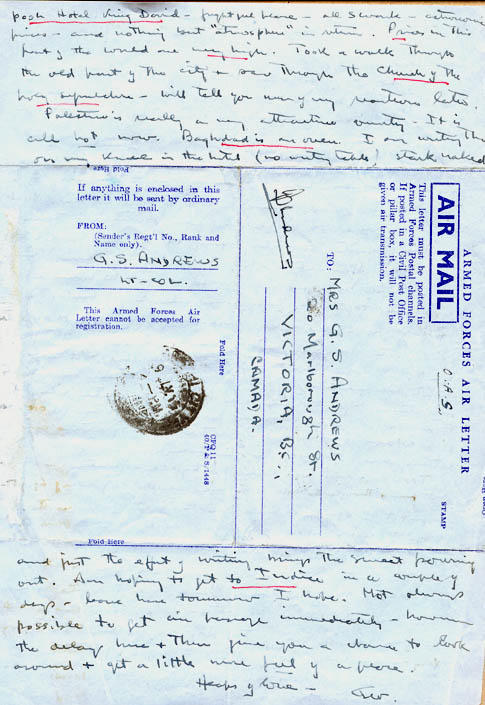 posh Hotel King David - frightful place - all swank - astronomical
prices - and nothing but "atmosphere" in return. Prices in this
part of the world are very high. Took a walk through
the old part of the city + saw through the Church of the
holy sepulchre - will tell you more of my reactions later
Palestine is really a very attractive country - It is
all hot now. Baghdad is an oven. I am writing this
on my knee in the hotel (no writing table) stark naked
Fold Here
If anything is enclosed in this
letter it will be sent by ordinary
mail.
FROM:
(Sender's Regt'l No., Rank and
Name only).
G.S. ANDREWS
LT-COL.
This Armed Forces Air
Letter cannot be accepted for
registration.
Fold Here
CFQ 11
Fold Here
ARMED FORCES AIR LETTER
AIR MAIL
This letter must be posted in
Armed Forces Postal channels.
If posted in a Civil Post Office
or pillar box, it will not be
given air transmission.
O.A.S.
STAMP
TO: MRS G. S. ANDREWS
Marlborough St.
VICTORIA, B.C.,
CANADA.
and just the effort of writing brings the sweat pouring
out. Am hoping to get to India in a couple of
days - leave here tomorrow I hope. Not always
possible to get air passage immediately - however
the delay here + there give you a chance to look
around + get a little more feel of a place.
Heaps of love -